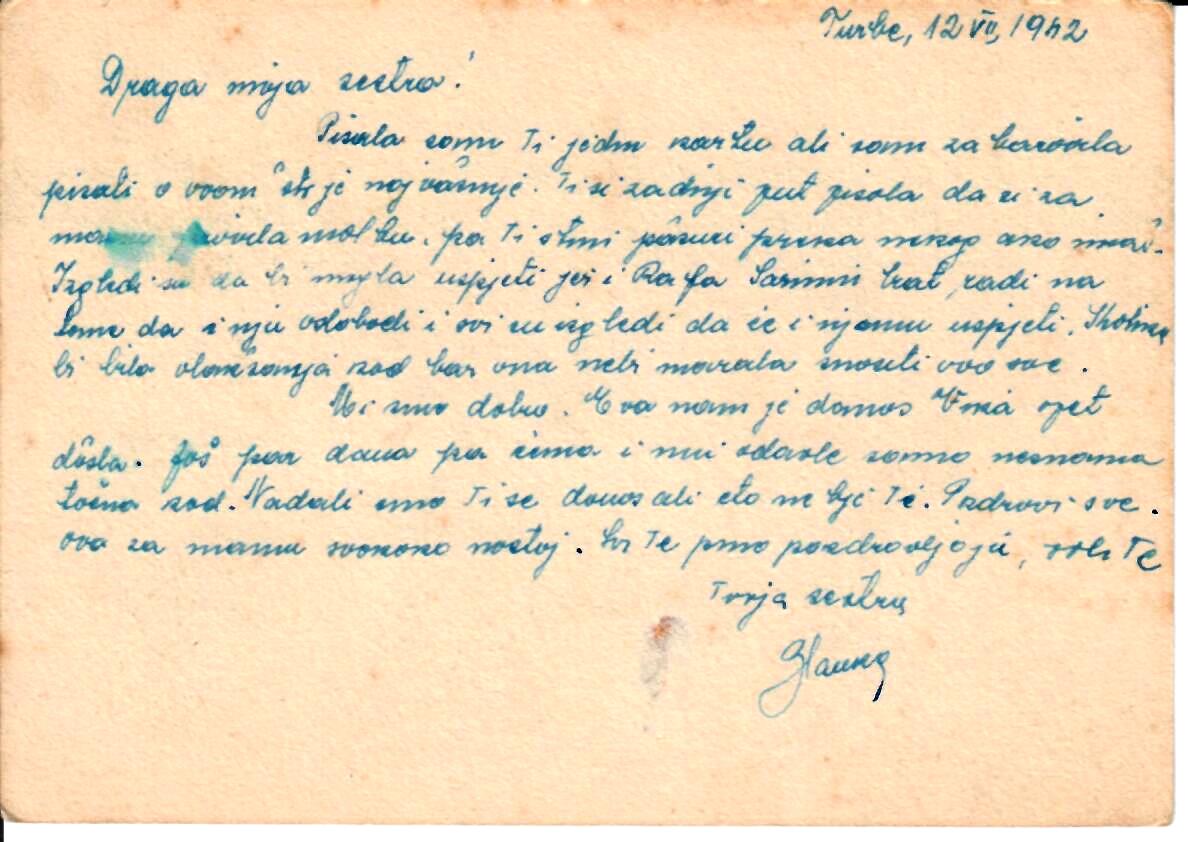 Turbe, 12 VII, 1942
Draga moja sestro!
Pisala sam Ti jednu kartu ali sam zaboravila
pisati o voom što je najvažnije. Ti si zadnji put pisala da si za
mamu pravila molbu, pa Ti stmi požuri preko nekog ako imaš.
Izgledi su da bi mogla uspjeti jer i Rafo Sarinin brat, radi na
tome da i nju oslobodi i svi su izgledi da će i njemu uspjeti.
bi bilo olakšanja kod bar ona nebi morala snositi ovo sve.
Mi smo dobro. Eva nam je danas opet
došla. Još par dana pa ćemo i mi odavle samo neznamo
točno kod. Nadali smo Ti se danas ali eto ne bje Te. Pozdravi sve.
ovo za mamu svakako nastoj. Svi Te puno pozdravljaju, voli Te
Tvoja sestra